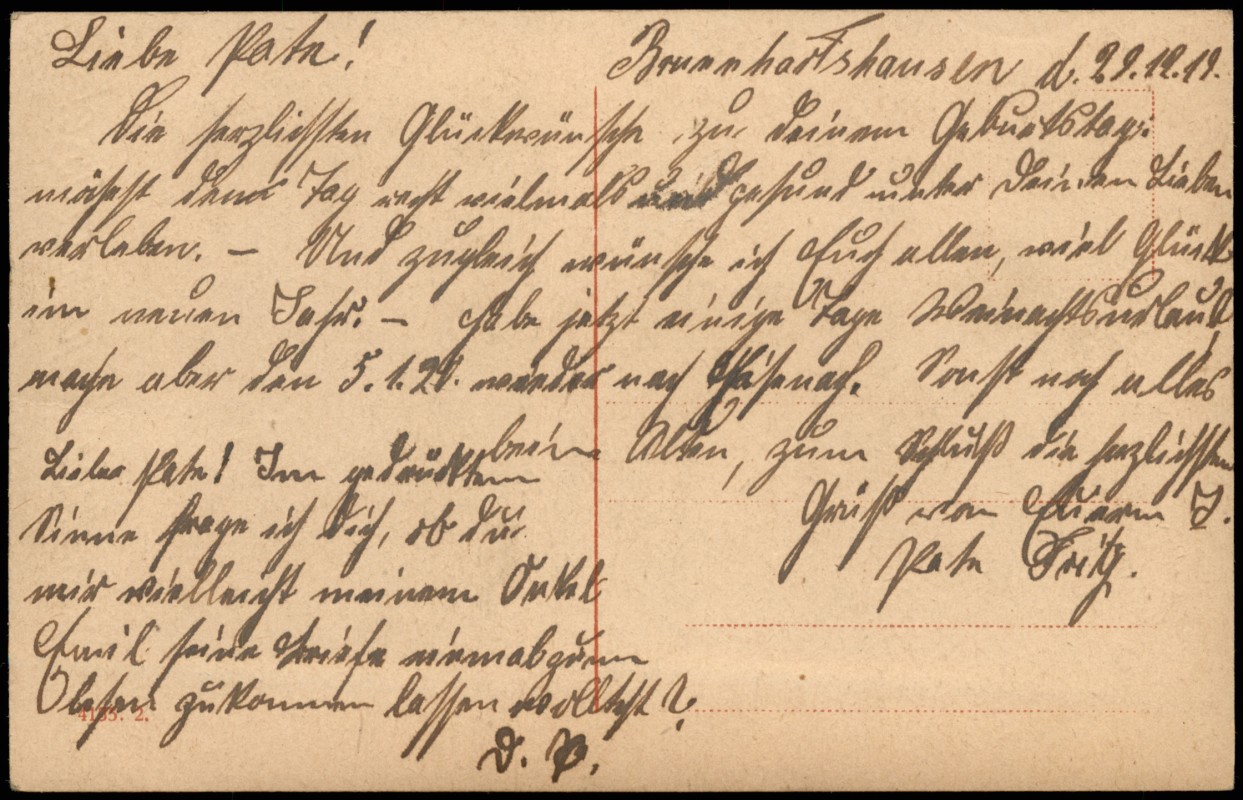 Liebe Pate!
Brunnhartshausen d. 29.12.19.
Die herzlichsten Glückwünsche zu deinem Geburtstag;
möchst denn Tag recht vielmals und gesund unter Deinen Lieben
verleben. – Und zugleich wünsche ich Euch allen, viel Glück
im neuen Jahr. – Habe jetzt einige Tage Weinachtsurlaub,
mache aber den 5.1.20. wieder nach Eisenach. Sonst noch alles
beim Alten, zum Schluß die herzlichsten
Grüße von Euerm J.
Pate Fritz.
Liebe Pate! Im gedrückten
Sinne frage ich Dich, ob du
mir vielleicht meinem Onkel
Emil seine Briefe einmal zum
lesen zukommen lassen wolltest?
D. P.
4135. 2.